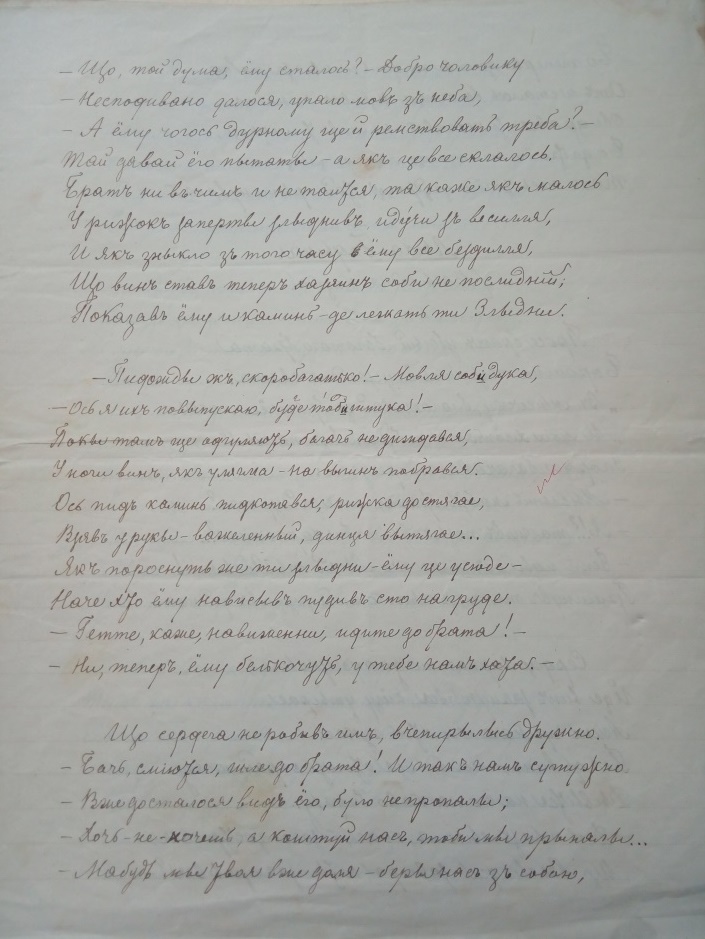 – Що, той дума, ёму сталось? – Добро чоловику
– Несподивано далося, упало мовъ зъ неба,
– А ёму чогось дурному ще й ремствовать треба? –
Тай давай ёго пытаты – а якъ це все склалось.
Братъ ни въ чимъ и не таится, та каже якъ малось
У рижокъ заперты злыднивъ, идучи зъ весилля,
И якъ зныкло зъ того часу въ ёму все безилля,
Що винъ ставъ теперъ хазяинъ соби не послидній;
Показавъ ёму и каминь – де лежать ти Злыдни.

– Пидожды жъ, скоробагатько! – Мовля соби дука,
– Ось я ихъ повыпускаю, буде тоби штука! –
Покы тамъ ще одгуляютъ, багачъ не диждався,
У ноги винъ, якъ улягма – на выгинъ побрався.
Ось пидъ каминь пидкопався, рижка достягае,
Взявъ у рукы – важеленный, динця вытягае...
Якъ пороснуть же ти злыдни – ёму це усюде –
Наче хто ёму нависывъ пудивъ сто на груде.
– Гетте, каже, навиженни, идите до брата! –
– Ни, теперъ, ёму белькочутъ, у тебе намъ хата. –

Що сердега не робывъ имъ, вчепырлысь дружно.
– Бачъ, смiются, шле до брата! И такъ намъ сутужно
– Вже досталося видъ ёго, було не пропалы;
– Хочъ-не-хочешъ, а коштуй насъ, тоби мы прыпалы...
– Мабудь мы твоя вже доля – беры насъ зъ собою,